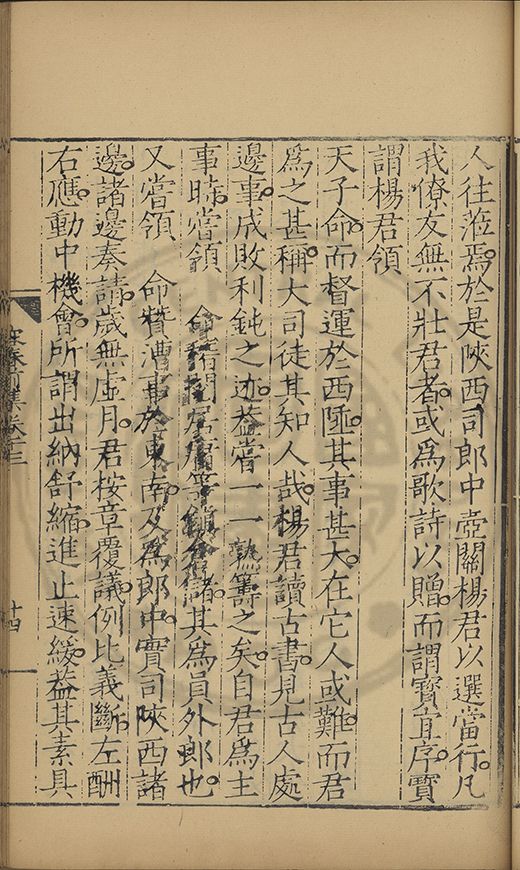 人往蒞焉於是陝西司郎中壺關楊君以選當行凡
我僚友無不壯君者或為歌詩以贈而謂寶宜序寶
謂楊君領
天子命而督運於西陲其事甚大在它人或難而君
為之甚稱大司徒其知人哉楊君讀古書見古人處
邊事成敗利鈍之迹葢嘗一一熟籌之矣自君為主
事時嘗領 命 其為員外郎也
又嘗領 命贊漕事於東南及為郎中實司陝西諸
邊諸邊奏請歲無虛月君桉章覆議例比義斷左酬
右應動中機會所謂出納舒縮進止速緩葢其素具
春前集卷十三
十四